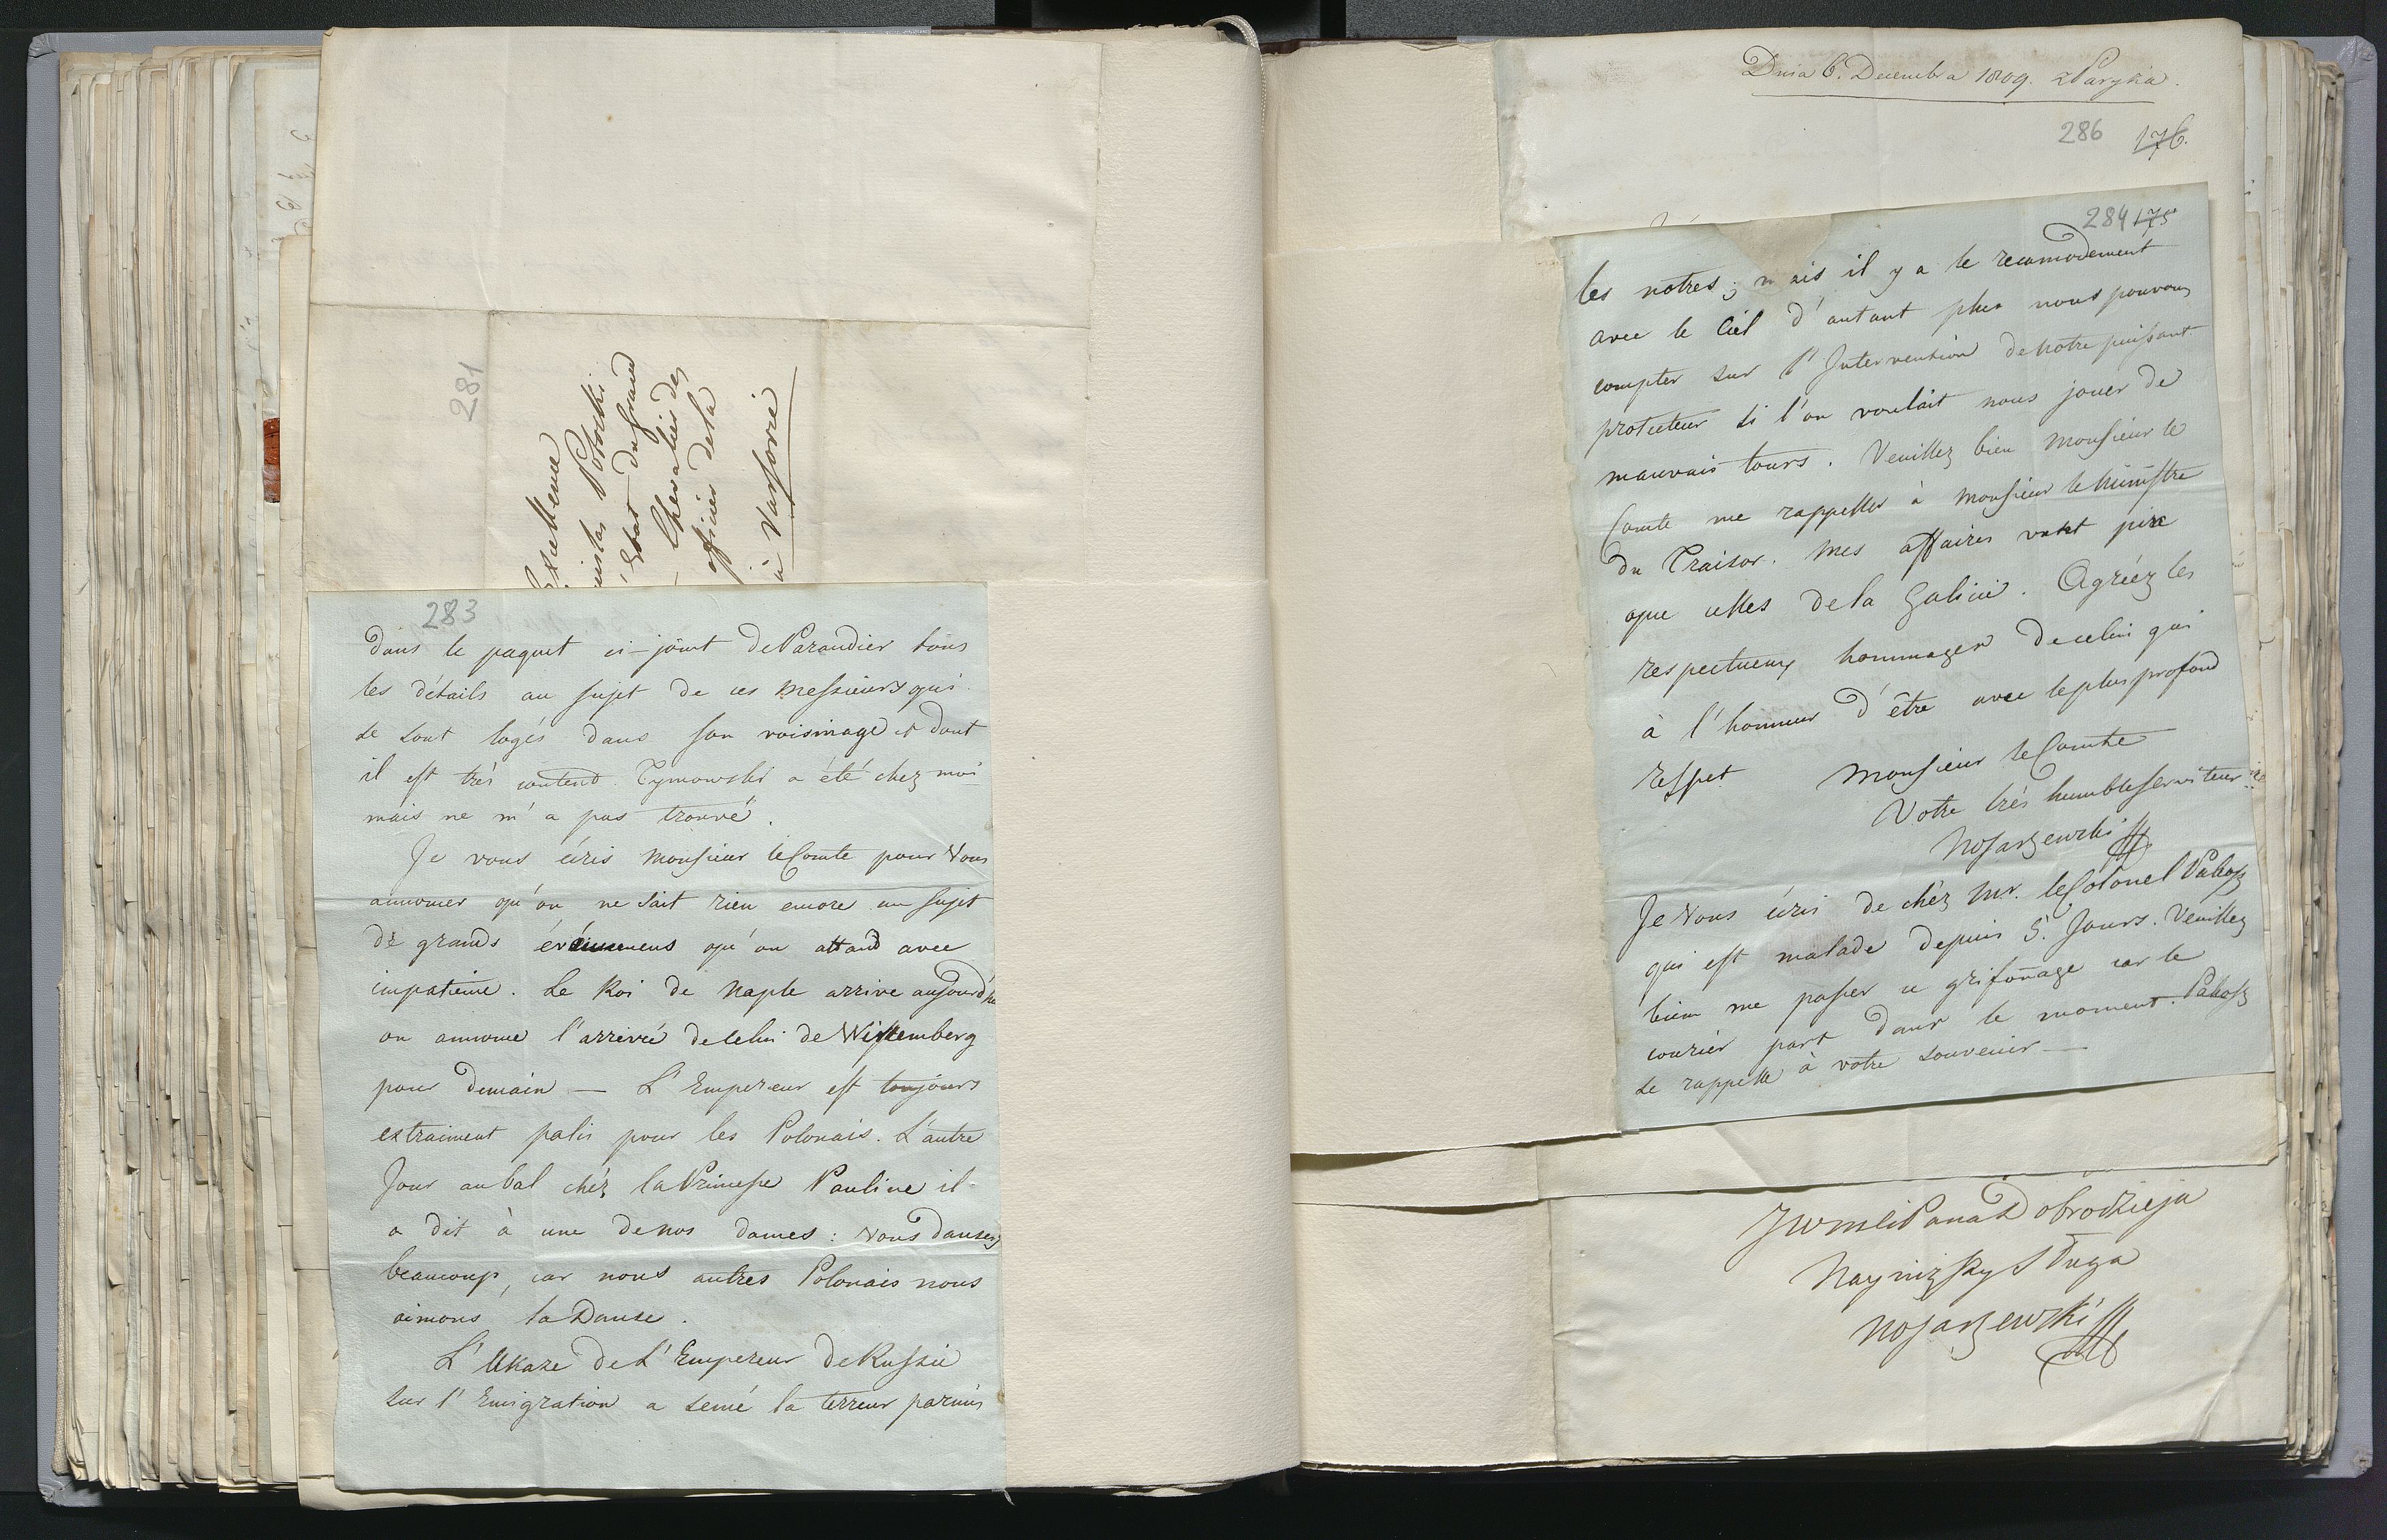 281
Excellence
Stanislas Potocki
Etat du Grand
Chevalier des
officier de la
à Varsovie
283
dans le paquet ci-joint de Parandier tous
les détails au sujet de ces Messieurs qui
se sont logés dans son voisinage et dont
il est trés content. Tymowski a été chez moi
mais ne m'a pas trouvé.
Je vous écris Monsieur le Comte pour Vous
annoncer qu'on ne sait rien encore au sujet
de grands événemens qu'on attand avec
impatience. Le Roi de Naple arrive aujourd'hu
on annonce l'arrivée de celui de Wirtemberg
pour demain — L'Empereur est toujours
extraiment polis pour les Polonais. L'autre
Jour au bal chéz la Princesse Pauline il
a dit à une de nos dames: Vous dansez
beaucoup, car nous autres Polonais nous
aimons la Danse.
L'Ukaze de L'Empereur de Russie
sur l'Emigration a semé la terreur parmis
Dnia 6. Decembra 1809. z Paryża.
286 176.
284 175
les notres; mais il y a le racomodement
avec le Ciel d'autant plus nous pouvons
compter sur l'Intervention de notre puissant
protecteur si l'on voulait nous jouer de
mauvais tours. Veuillez bien Monsieur le
Comte me rappeller à Monsieur le Ministre
du Traisor. Mes affaires vont pire
que celles de la Galicie. Agréez les
respectueux hommages de celui qui
à l'honneur d'être avec le plus profond
respet Monsieur le Comte
Votre trés humble serviteur
Nosarzewski
Je Vous écris de chéz Mr. le Colonel Pakosz
qui est malade depuis 5. Jours. Veuillez
bien me passer ce grifonage car le
courier part dans le moment. Pakosz
se rappelle à votre souvenir —
JWmci Pana Dobrodzieja
Nayniższy Sługa
Nosarzewski